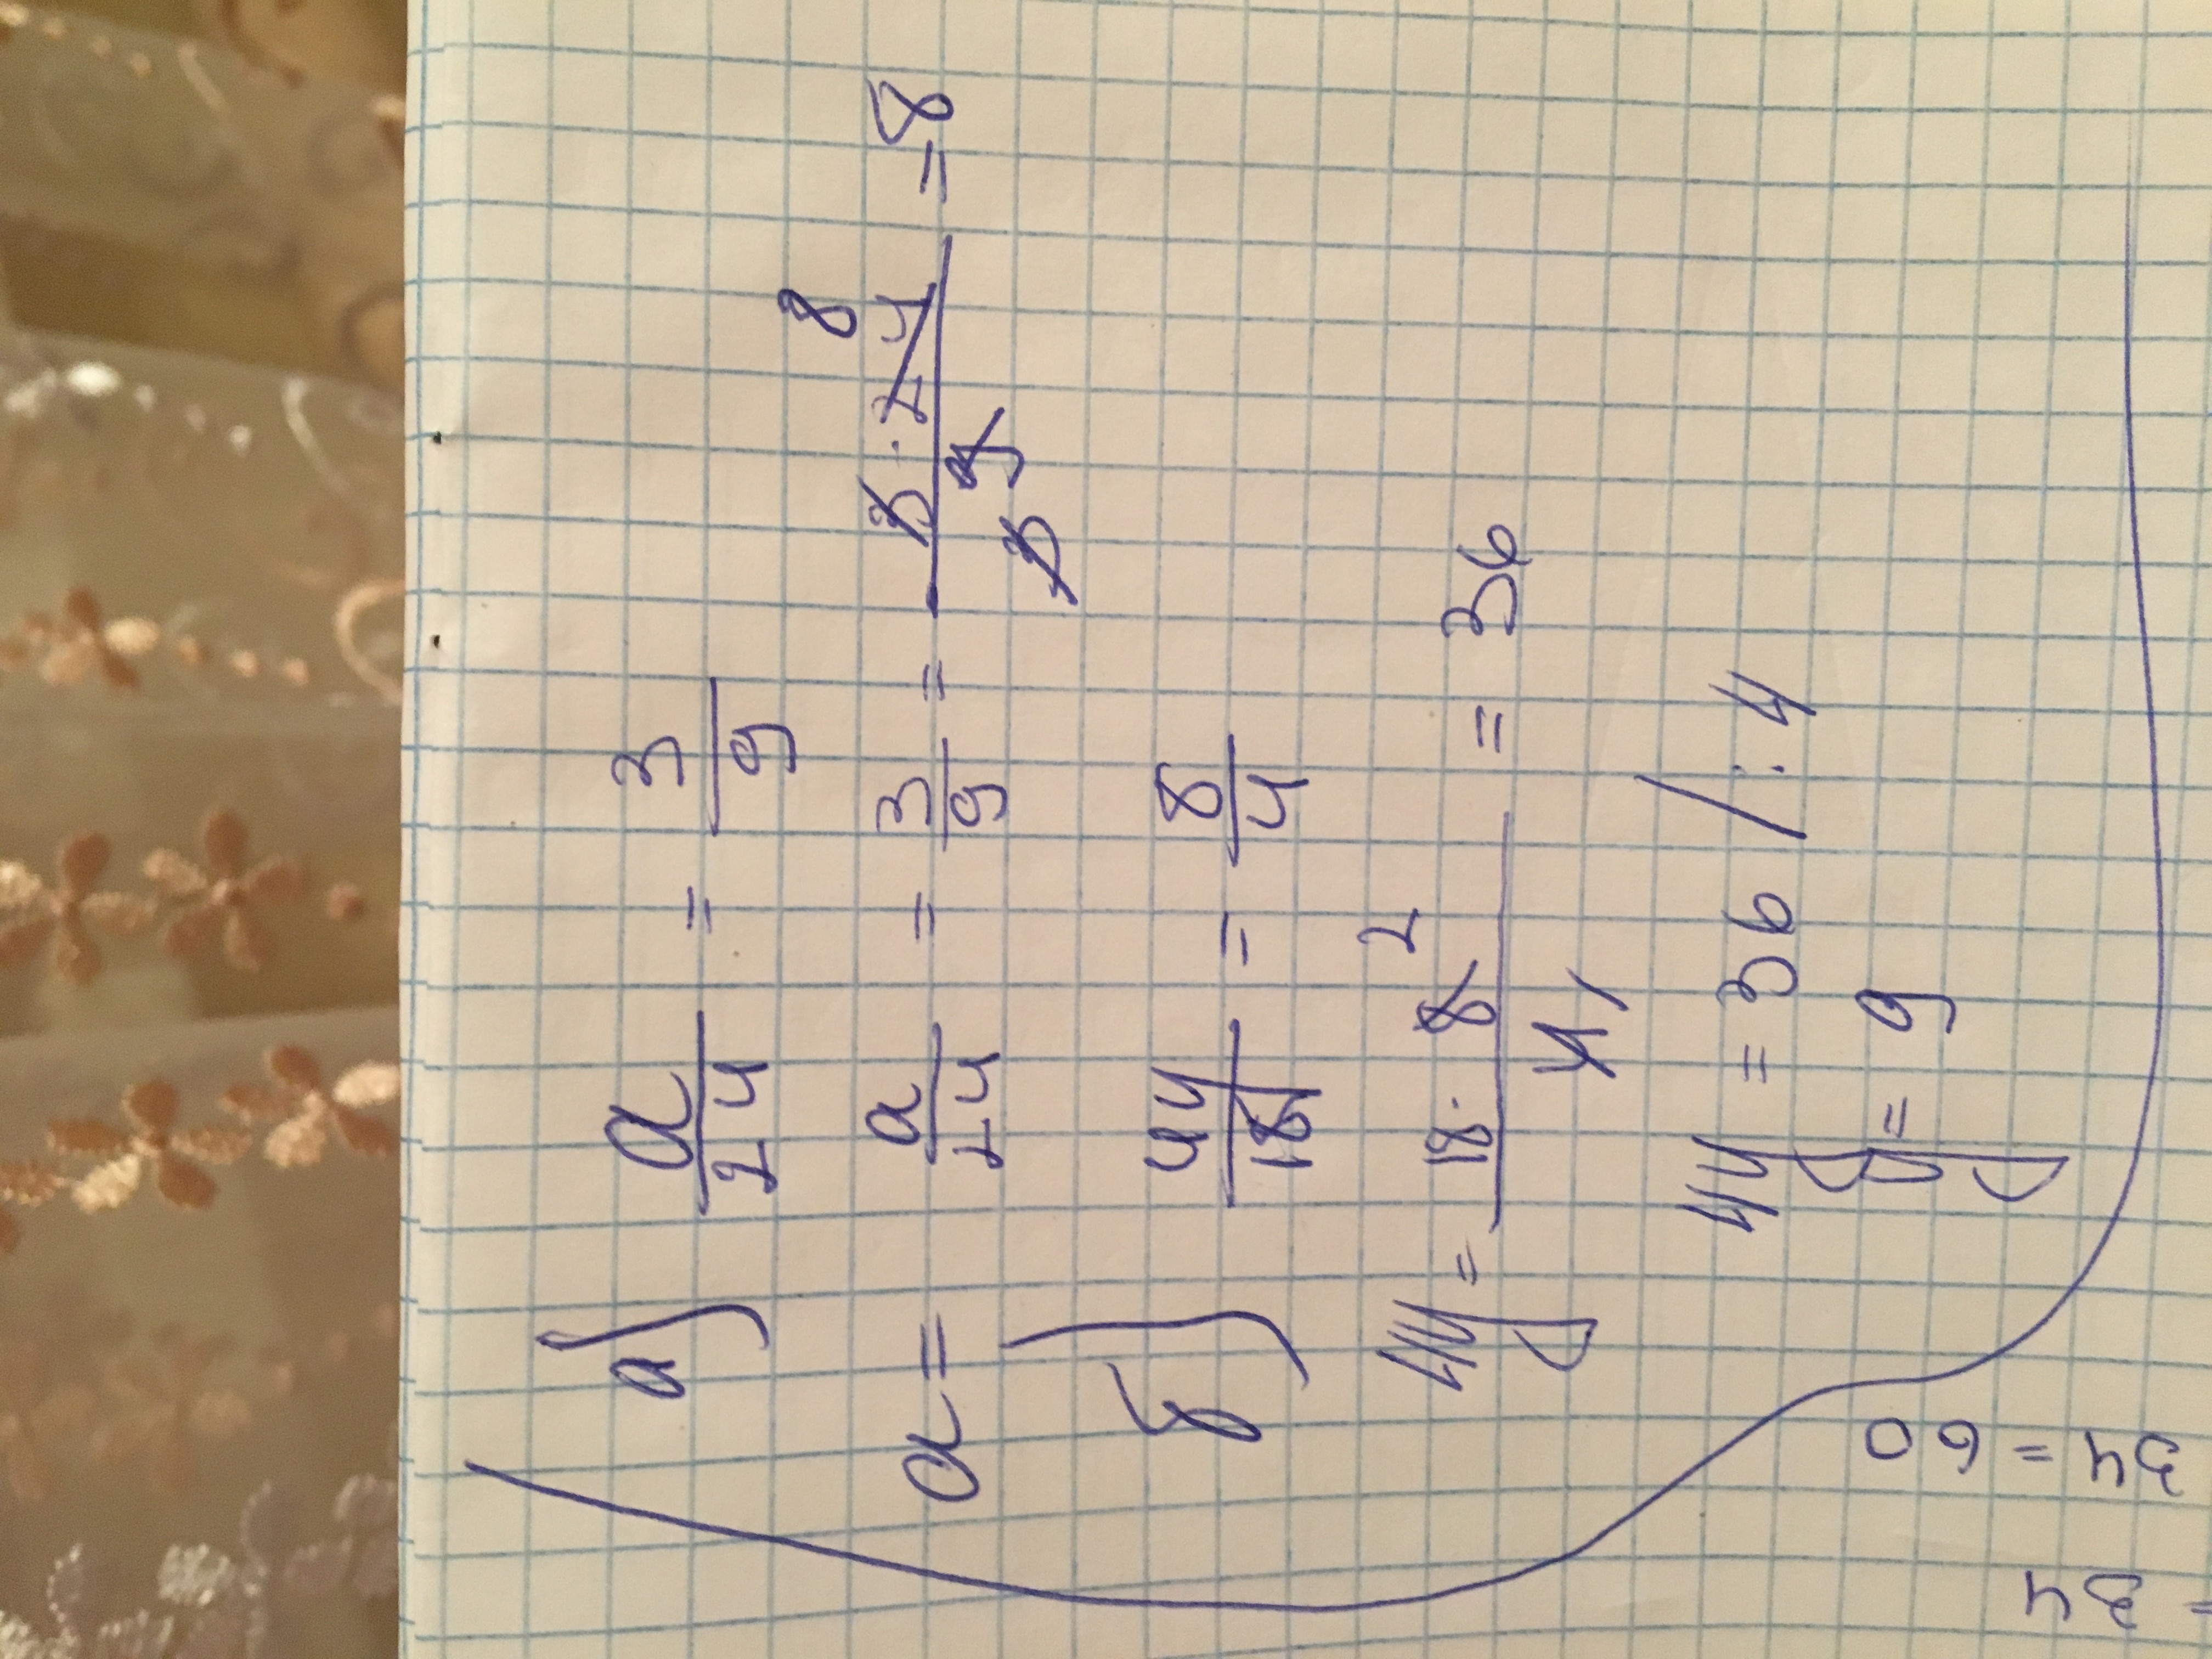 а) a/24 = 3/9
a = a/24 = 3/9 = 3·24/9 = 8
8
3
б) 4y/18 = 8/4
4y = 18·8/4 = 36
2
1
4y = 36 /:4
y = 9
34 = 60
= 34